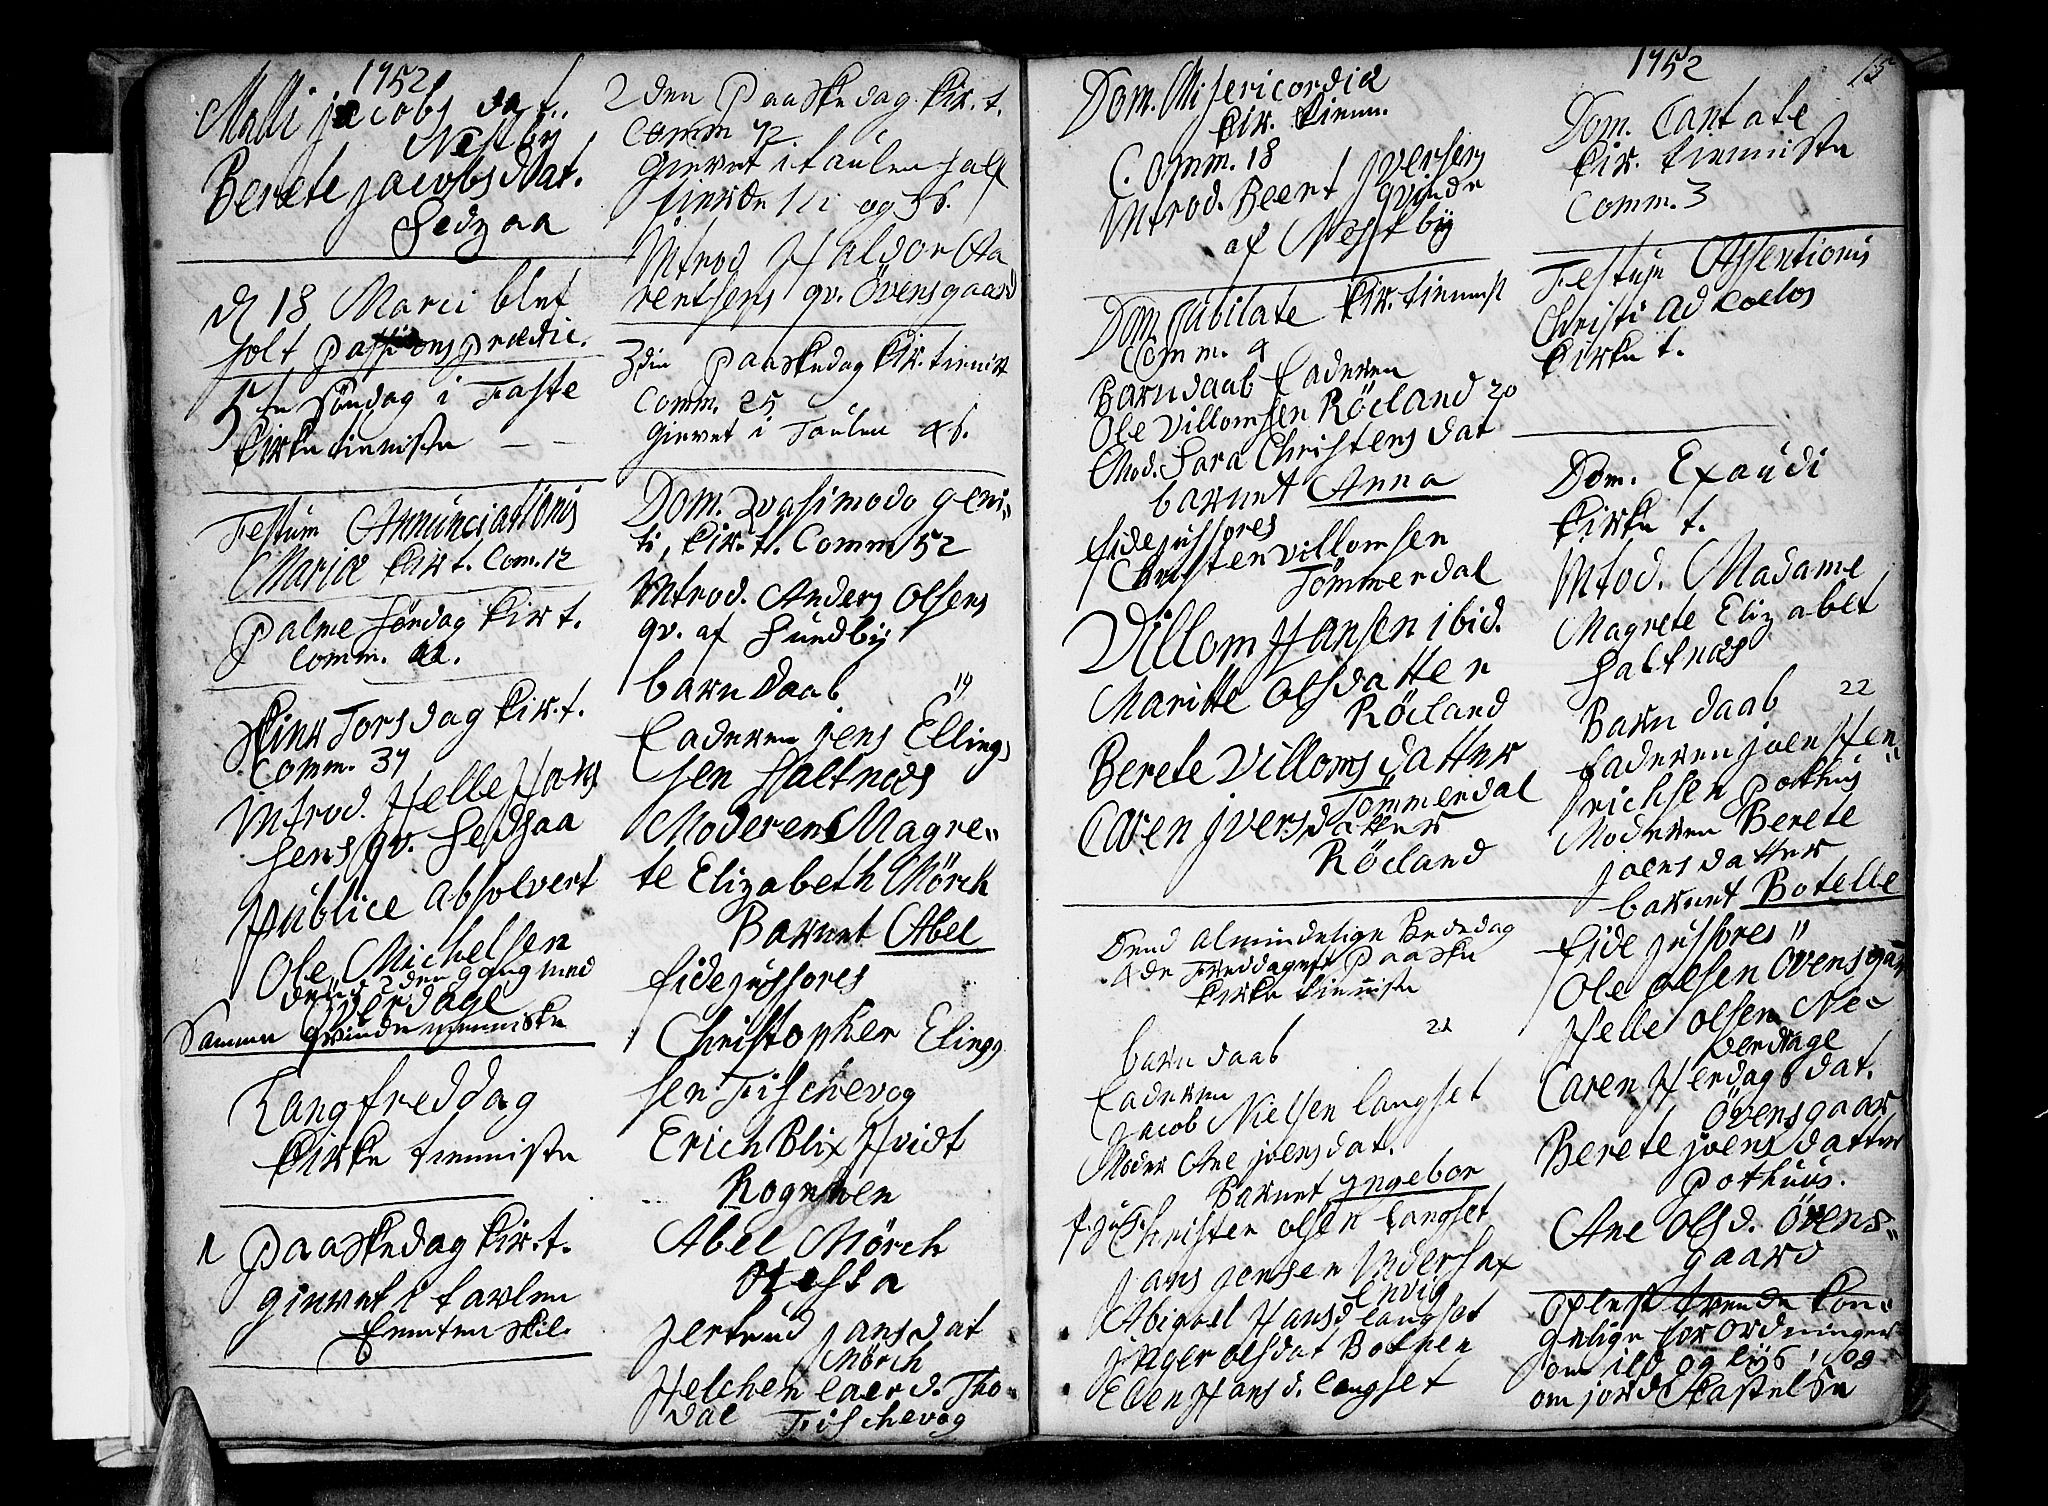 1752
Malli jacobs dat.
Nestby
Berete jacobs dat.
Sedsaa
d 18 Marci blef
holt passions prædic.
5te Søndag i Faste
kirketienniste
Festum Annunciationis
Mariæ kir t. Com. 12
Palme Søndag kir t.
Comm.
Skiær Torsdag kir. t.
Comm. 37
Introd. Helle Hans
sens qv. Sedsaa
publice absolvert
Ole Michelsen
2den gang med
Samme qvinde menniske
Langfreddag
kirke tienniste
1 paaskedag kir. t.
givet i tavlen
femten skil.
2den paaskedag kir. t.
Comm 42
givet i taulen half
og 3 s.
Introd Haldor Aa
rentsens qv. Övensgaard
3die paaskedag kir. tienist
Comm. 25
givet i Taulen 4 s.
Dom. Qvasimodo geni"
ti, kir. t. Comm 52
Introd. Anders Olsens
qv. af Sundby
barn daab 19
faderen jens Ellings
sen Saltnæs
Moderen Magre"
te Elizabeth Mörch
Barnet Abel
fidejussores
Christopher Elings
sen Fischevog
Erich Blix Hvidt
Rognhven
Abel Mörch
Jertrud jansdat
Mörch
Helchen Laerd. Tho
dal Fischevog
Dom. Misericordia
kir. tienn.
Comm. 18
Introd. Beert Iversens
qvinde
af Nestby
Dom. jubilate kir. tiennist
Comm. 4
Barndaab faderen
Ole Villomsen Röcland 20
Mod. Sara Christens dat
barnet Anna
fidejussores
Christen Villomsen
Tömmerdal
Villom Hansen ibid.
Maritte Olsdatter
Röcland
Berete Villoms datter
Tömmerdal
Caren jversdatter
Röcland
Dend almindelige Bededag
4de freddag eft paaske
kirke tienniste
barn daab 21
faderen
Jacob Nielsen langset
Moder Ane joensdat.
Barnet Ingebor
f. jus. Christen olsen langset
Jans jensen Indersax
Envig
Abigael Hansd langset
Inger olsdat Botnen
Elen Hansd. langset
1752 15
Dom. Cantate
kir. tienniste
Comm. 3
Festum Assentionis
Christi ad coelos
kirke t.
Dom. Exaudi
kirke t.
Introd. Madame
Magrete Elizabet
Saltnæs
Barn daab 22
faderen joen Hen"
richsen pothus
Moderen Berete
joens datter
barnet Botelle
fide jussores"
Ole olsen Övensgaar
Helle olsen Ne"
verdage
Caren Herdags dat.
Övensgaar
Berete joens datter
pothuus.
Ane olsd. Övens"
gaard
Oplest trende kon"
gelige forordninger
om ild og lyś, og
om jords kastelse